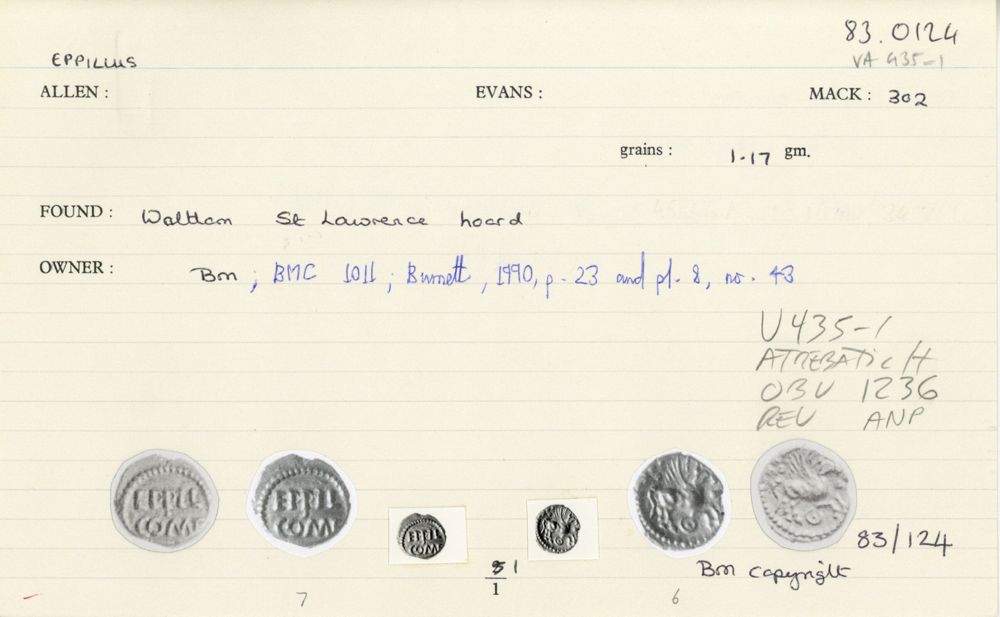 83.0124
EPPILLUS
VA 435-1
ALLEN : EVANS : MACK : 302
grains : 1.17 gm.
FOUND : Waltham St Lawrence hoard
OWNER : Bm ; BMC 1011 ; Burnett, 1990, p. 23 and pl. 8, no. 43
V435-1
ATREBATIC H
OBV 1236
REV ANP
EPPIL
COM
EPPIL
COM
EPPIL
COM
83/124
Bm copyright
1
1
7 6